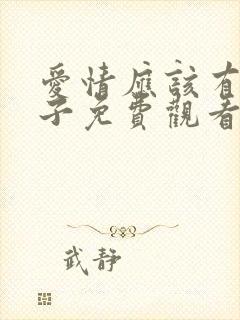 愛情應該有
子免費觀看
武靜